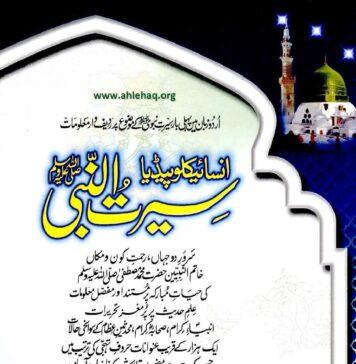 www.ahlehaq.org
اردو زبان میں پہلی بار سیرت نبوی ﷺ کے موضوع پر ردیف وار معلومات
انسائیکلوپیڈیا
سیرت النبی صلی اللہ علیہ وسلم
سرورِ دو جہاں، رحمتِ کون و مکاں
خاتم النبیین حضرت محمد مصطفیٰ صلی اللہ علیہ وسلم
کی حیاتِ مبارکہ پر مستند اور مفصل معلومات
علمِ حدیث پر پُر مغز تحریرات
انبیاء کرام، صحابہ کرام، محدثین عظام کے سوانحی حالات
ایک ہزار کے قریب عنوانات حروفِ تہجی کی ترتیب میں